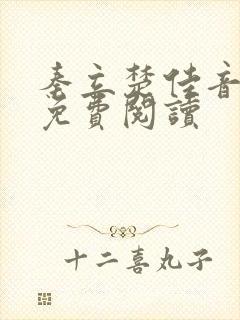 秦立楚佳音
免費閱讀
十二喜丸子